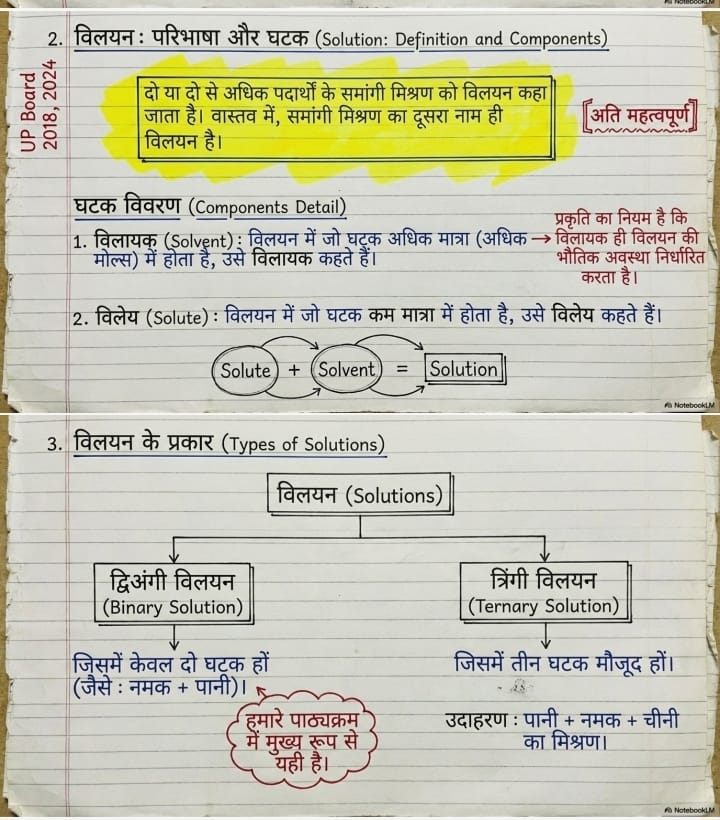 NotebookLM
2. विलयन : परिभाषा और घटक (Solution: Definition and Components)
UP Board
2018, 2024
दो या दो से अधिक पदार्थों के समांगी मिश्रण को विलयन कहा
जाता है। वास्तव में, समांगी मिश्रण का दूसरा नाम ही
विलयन है।
[अति महत्वपूर्ण]
घटक विवरण (Components Detail)
1. विलायक (Solvent) : विलयन में जो घटक अधिक मात्रा (अधिक
मोल्स) में होता है, उसे विलायक कहते हैं।
→ प्रकृति का नियम है कि
विलायक ही विलयन की
भौतिक अवस्था निर्धारित
करता है।
2. विलेय (Solute) : विलयन में जो घटक कम मात्रा में होता है, उसे विलेय कहते हैं।
Solute + Solvent = Solution
NotebookLM
3. विलयन के प्रकार (Types of Solutions)
विलयन (Solutions)
द्विअंगी विलयन
(Binary Solution)
जिसमें केवल दो घटक हों
(जैसे : नमक + पानी)।
हमारे पाठ्यक्रम
में मुख्य रूप से
यही है।
त्रिंगी विलयन
(Ternary Solution)
जिसमें तीन घटक मौजूद हों।
उदाहरण : पानी + नमक + चीनी
का मिश्रण।
NotebookLM